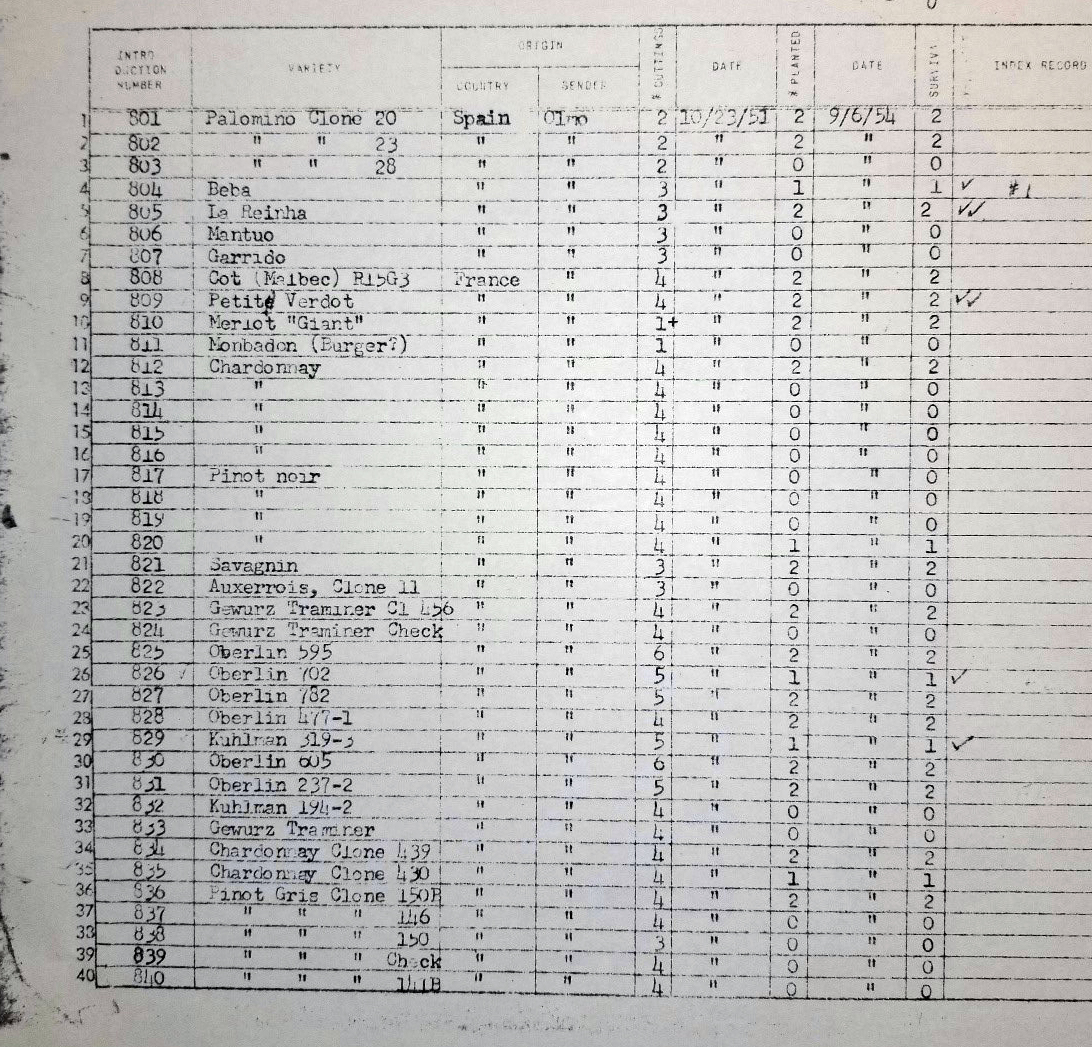 ORIGIN
INTRO DUCTION NUMBER VARIETY COUNTRY SENDER # CUTTINGS DATE # PLANTED DATE SURVIV INDEX RECORD
1 801 Palomino Clone 20 Spain Olmo 2 10/23/51 2 9/6/54 2
2 802 " " 23 " " 2 " 2 " 2
3 803 " " 28 " " 2 " 0 " 0
4 804 Beba " " 3 " 1 " 1 ✓ #1
5 805 La Reinha " " 3 " 2 " 2 ✓✓
6 806 Mantuo " " 3 " 0 " 0
7 807 Garrido " " 3 " 0 " 0
8 808 Cot (Malbec) R15G3 France " 4 " 2 " 2
9 809 Petite Verdot " " 4 " 2 " 2 ✓✓
10 810 Merlot "Giant" " " 1+ " 2 " 2
11 811 Monbadon (Burger?) " " 1 " 0 " 0
12 812 Chardonnay " " 4 " 2 " 2
13 813 " " " 4 " 0 " 0
14 814 " " " 4 " 0 " 0
15 815 " " " 4 " 0 " 0
16 816 " " " 4 " 0 " 0
17 817 Pinot noir " " 4 " 0 " 0
18 818 " " " 4 " 0 " 0
19 819 " " " 4 " 0 " 0
20 820 " " " 4 " 1 " 1
21 821 Savagnin " " 3 " 2 " 2
22 822 Auxerrois, Clone 11 " " 3 " 0 " 0
23 823 Gewurz Traminer Cl 456 " " 4 " 2 " 2
24 824 Gewurz Traminer Check " " 4 " 0 " 0
25 825 Oberlin 595 " " 6 " 2 " 2
26 826 ✓ Oberlin 702 " " 5 " 1 " 1 ✓
27 827 Oberlin 782 " " 5 " 2 " 2
28 828 Oberlin 477-1 " " 4 " 2 " 2
29 829 Kuhlman 319-3 " " 5 " 1 " 1 ✓
30 830 Oberlin 605 " " 6 " 2 " 2
31 831 Oberlin 237-2 " " 5 " 2 " 2
32 832 Kuhlman 194-2 " " 4 " 0 " 0
33 833 Gewurz Traminer " " 4 " 0 " 0
34 834 Chardonnay Clone 439 " " 4 " 2 " 2
35 835 Chardonnay Clone 430 " " 4 " 1 " 1
36 836 Pinot Gris Clone 150B " " 4 " 2 " 2
37 837 " " " 146 " " 4 " 0 " 0
38 838 " " " 150 " " 3 " 0 " 0
39 839 " " " Check " " 4 " 0 " 0
40 840 " " " 141B " " 4 " 0 " 0